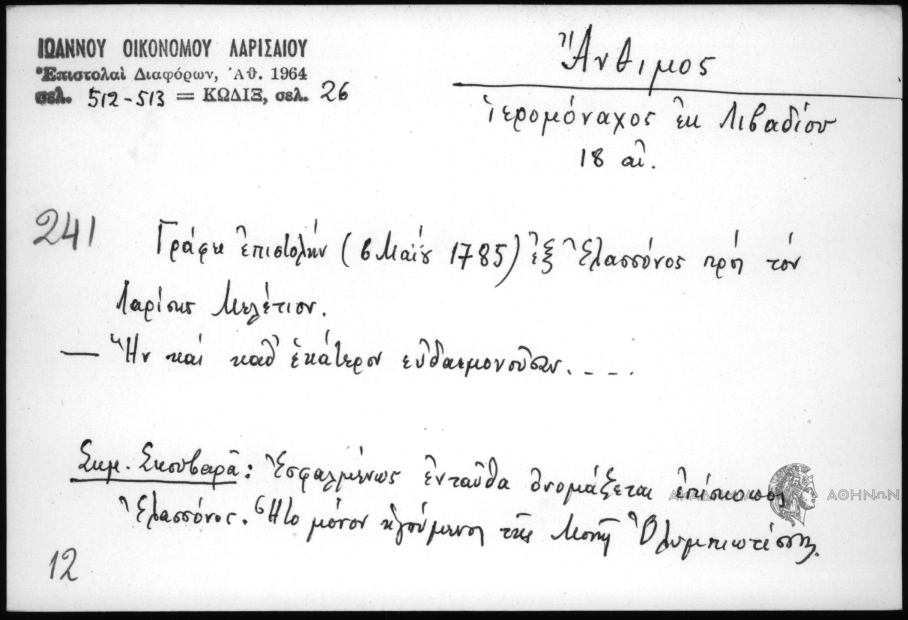 ΙΩΑΝΝΟΥ ΟΙΚΟΝΟΜΟΥ ΛΑΡΙΣΑΙΟΥ
Ἐπιστολαὶ Διαφόρων, Ἀθ. 1964
σελ. 512-513 = ΚΩΔΙΞ, σελ. 26
Ἄνθιμος
ἱερομόναχος ἐκ Λιβαδίου
18 αἰ.
241
Γράφει ἐπιστολήν (6 Μαΐου 1785) ἐξ Ἐλασσόνος πρὸς τὸν
Λαρίσης Μελέτιον.
— Ἢν καὶ καθ' ἑκάτερον εὐδαιμονοῦσαν. - - -
Σημ. Σκουβαρᾶ: Ἐσφαλμένως ἐνταῦθα ὀνομάζεται ἐπίσκοπος
Ἐλασσόνος. Ἦτο μόνον ἡγούμενος τῆς Μονῆς Ὀλυμπιωτίσσης.
12
ΑΘΗΝΩΝ